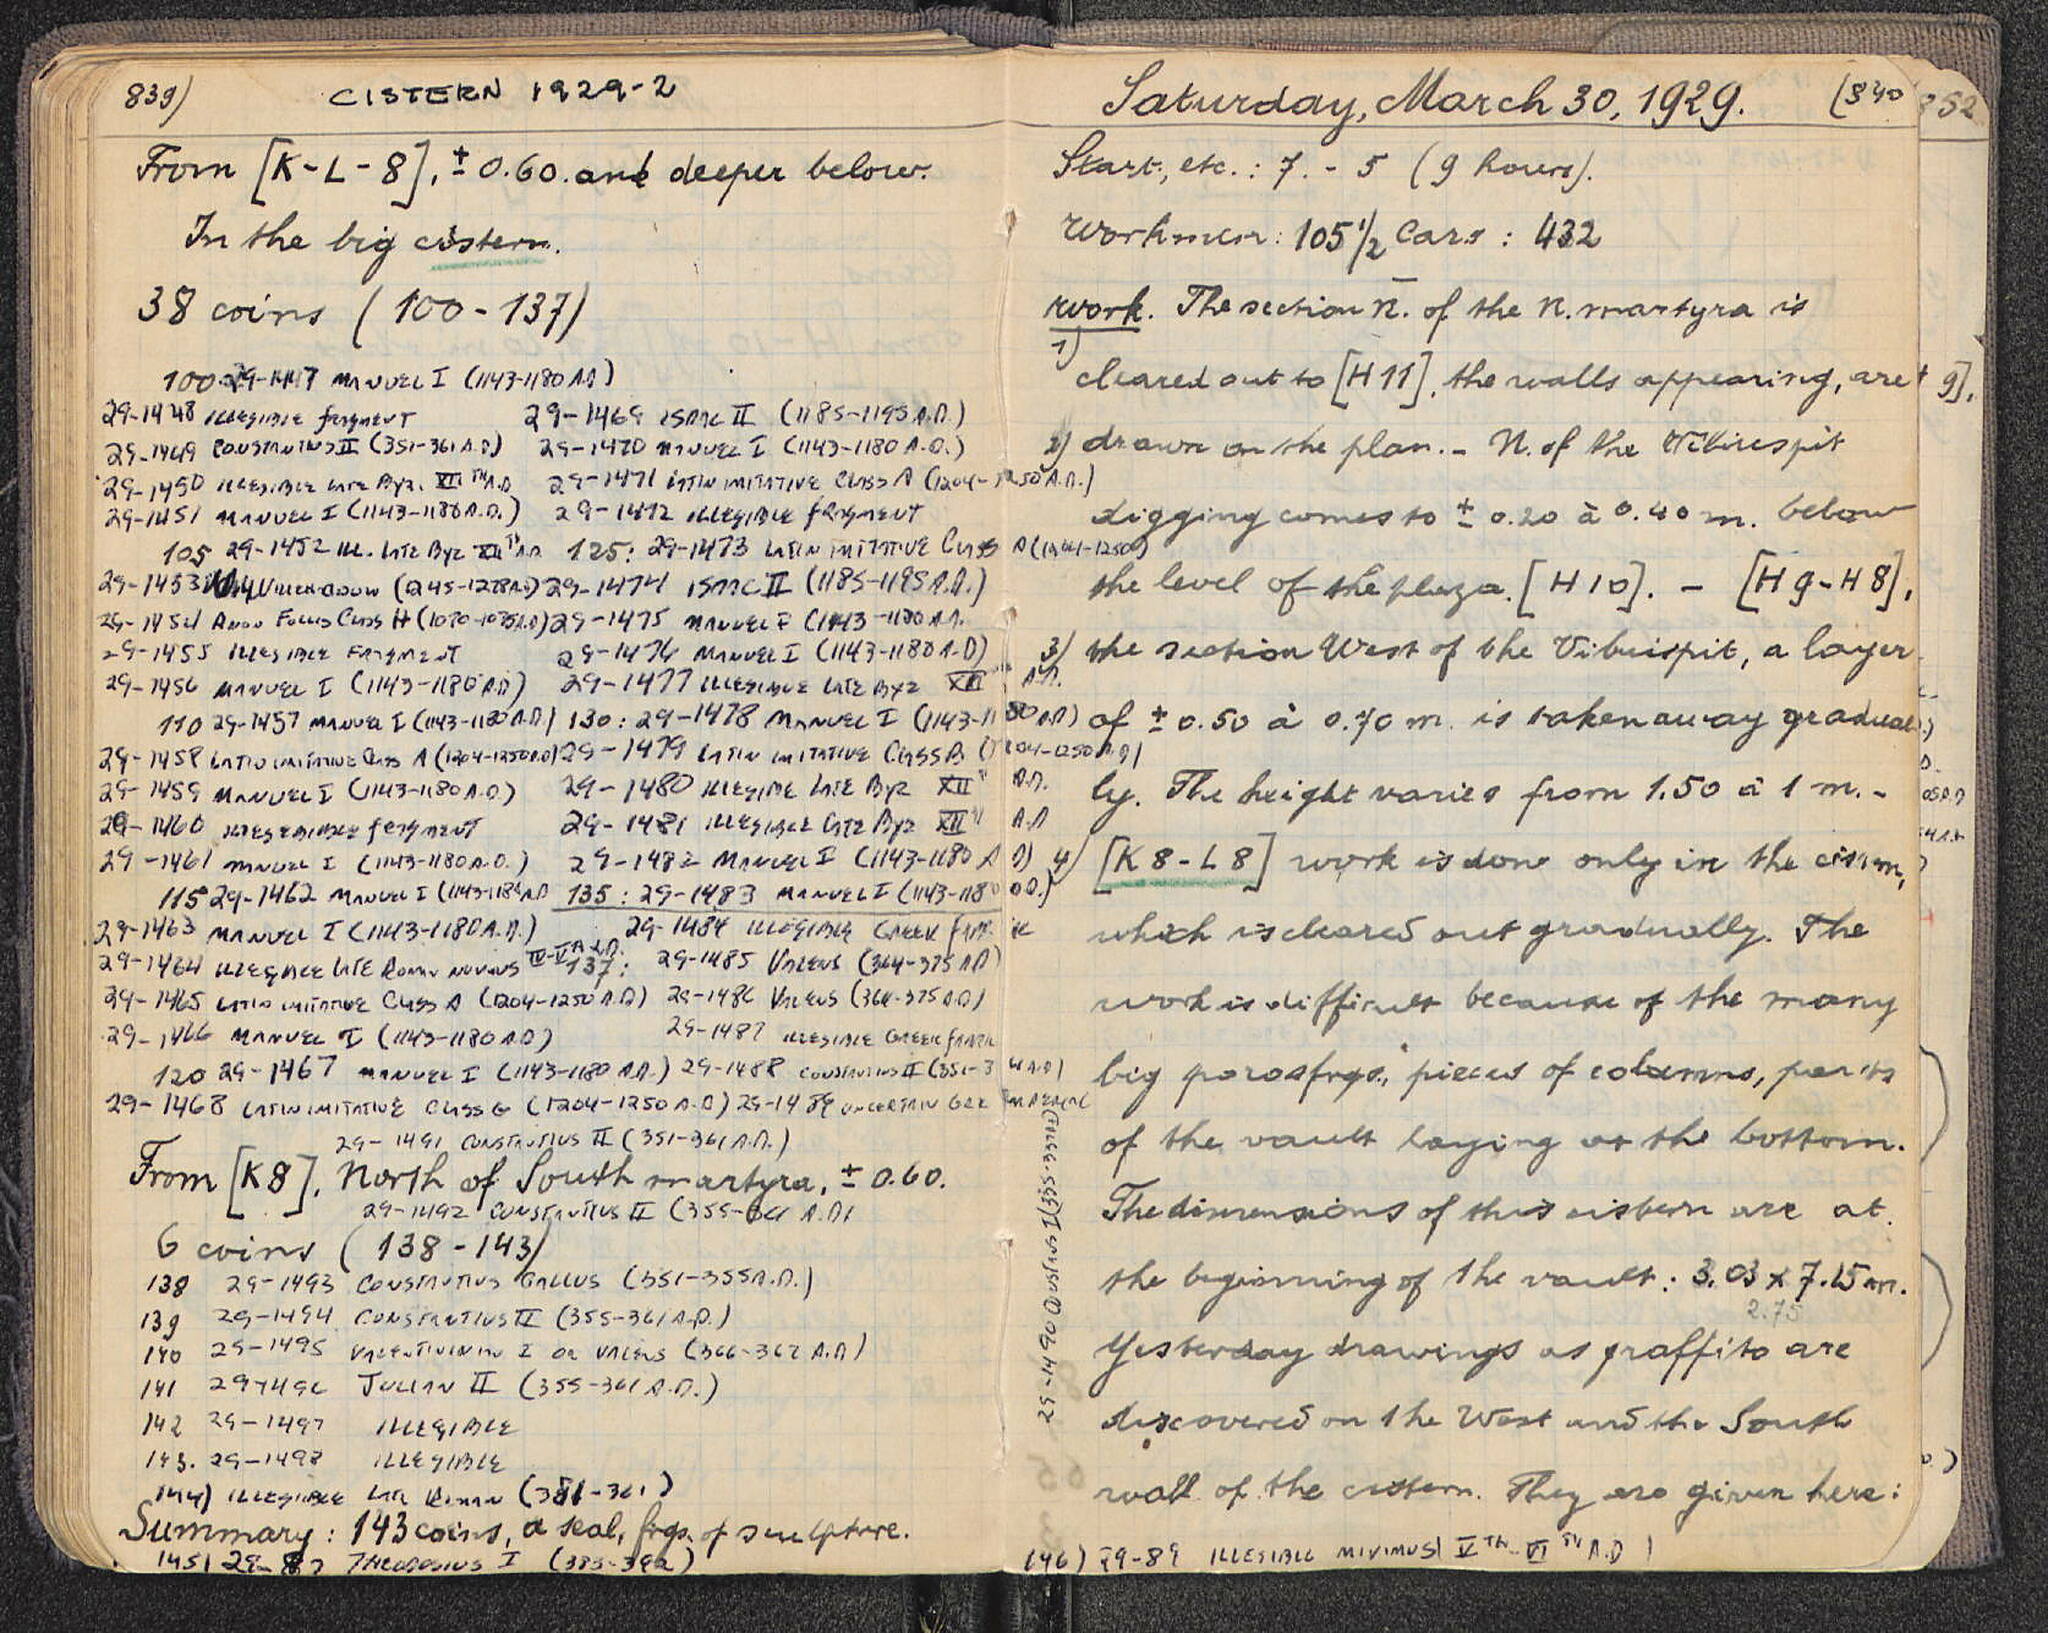 839)
CISTERN 1929-2
From [K-L-8], ± 0.60. and deeper below.
In the big cistern.
38 coins (100-137)
100 29-1447 MANUEL I (1143-1180 A.D)
29-1448 ILLEGIBLE FRAGMENT
29-1449 CONSTANTIUS II (351-361 A.D)
29-1450 ILLEGIBLE LATE BYZ. XII TH A.D
29-1451 MANUEL I (1143-1180 A.D.)
105 29-1452 ILL. LATE BYZ XII TH A.D
29-1453 VILLEHARDOUIN (1245-1278 A.D)
29-1454 ANON FOLLIS CLASS H (1070-1075 A.D)
29-1455 ILLEGIBLE FRAGMENT
29-1456 MANUEL I (1143-1180 A.D)
110 29-1457 MANUEL I (1143-1180 A.D)
29-1458 LATIN IMITATIVE CLASS A (1204-1250 A.D)
29-1459 MANUEL I (1143-1180 A.D)
29-1460 ILLEGIBLE FRAGMENT
29-1461 MANUEL I (1143-1180 A.D.)
115 29-1462 MANUEL I (1143-1180 A.D
29-1463 MANUEL I (1143-1180 A.D.)
29-1464 ILLEGIBLE LATE ROMAN NUMMUS IV-VTH A.D.
29-1465 LATIN IMITATIVE CLASS A (1204-1250 A.D)
29-1466 MANUEL I (1143-1180 A.D)
120 29-1467 MANUEL I (1143-1180 A.D.)
29-1468 LATIN IMITATIVE CLASS G (1204-1250 A.D)
29-1469 ISAAC II (1185-1195 A.D.)
29-1470 MANUEL I (1143-1180 A.D.)
29-1471 LATIN IMITATIVE CLASS A (1204-1250 A.D.)
29-1472 ILLEGIBLE FRAGMENT
125: 29-1473 LATIN IMITATIVE CLASS A (1204-1250)
29-1474 ISAAC II (1185-1195 A.D.)
29-1475 MANUEL I (1143-1180 A.D.
29-1476 MANUEL I (1143-1180 A.D)
29-1477 ILLEGIBLE LATE BYZ XII TH A.D.
130: 29-1478 MANUEL I (1143-1180 A.D)
29-1479 LATIN IMITATIVE CLASS B (1204-1250 A.D)
29-1480 ILLEGIBLE LATE BYZ XII TH A.D.
29-1481 ILLEGIBLE LATE BYZ XII TH A.D
29-1482 MANUEL I (1143-1180 A D)
135: 29-1483 MANUEL I (1143-1180 A.D.)
29-1484 ILLEGIBLE GREEK
137: 29-1485 VALENS (364-375 A.D)
29-1486 VALENS (364-375 A.D)
29-1487 ILLEGIBLE GREEK
29-1488 CONSTANTIUS II (351-361 A.D)
29-1489 UNCERTAIN GREEK IMPERIAL
29-1490 CONSTANS I (335-337) FOLLIS
29-1491 CONSTANTIUS II (351-361 A.D.)
From [K8], North of South martyra, ± 0.60.
29-1492 CONSTANTIUS II (355-361 A.D)
6 coins (138-143)
138 29-1493 CONSTANTIUS GALLUS (351-355 A.D.)
139 29-1494 CONSTANTIUS II (355-361 A.D.)
140 29-1495 VALENTINIAN I OR VALENS (366-367 A.D)
141 29-1496 JULIAN II (355-361 A.D.)
142 29-1497 ILLEGIBLE
143. 29-1498 ILLEGIBLE
144) ILLEGIBLE LATE ROMAN (351-361)
Summary: 143 coins, a seal, frgs. of sculpture.
145) 29-87 THEODOSIUS I (383-392)
Saturday, March 30, 1929.
(840
Start, etc.: 7. - 5 (9 hours).
Workmen: 105 1/2 Cars: 432
Work. The section N. of the N. martyra is
1) cleared out to [H11], the walls appearing, are
2) drawn on the plan. - N. of the Vibiuspit
digging comes to ± 0.20 à 0.40 m. below
the level of the plaza. [H10]. - [H9-H8],
3) the section West of the Vibiuspit, a layer
of ± 0.50 à 0.70 m. is taken away gradual
ly. The height varies from 1.50 à 1 m. -
4) [K8-L8] work is done only in the cistern,
which is cleared out gradually. The
work is difficult because of the many
big poros frgs., pieces of columns, parts
of the vault laying at the bottom.
The dimensions of this cistern are at
the beginning of the vault: 3.03 x 7.15 m.
2.75
Yesterday drawings as graffito are
discovered on the West and the South
wall of the cistern. They are given here:
146) 29-89 ILLEGIBLE MINIMUS VTH-VI TH A.D
352